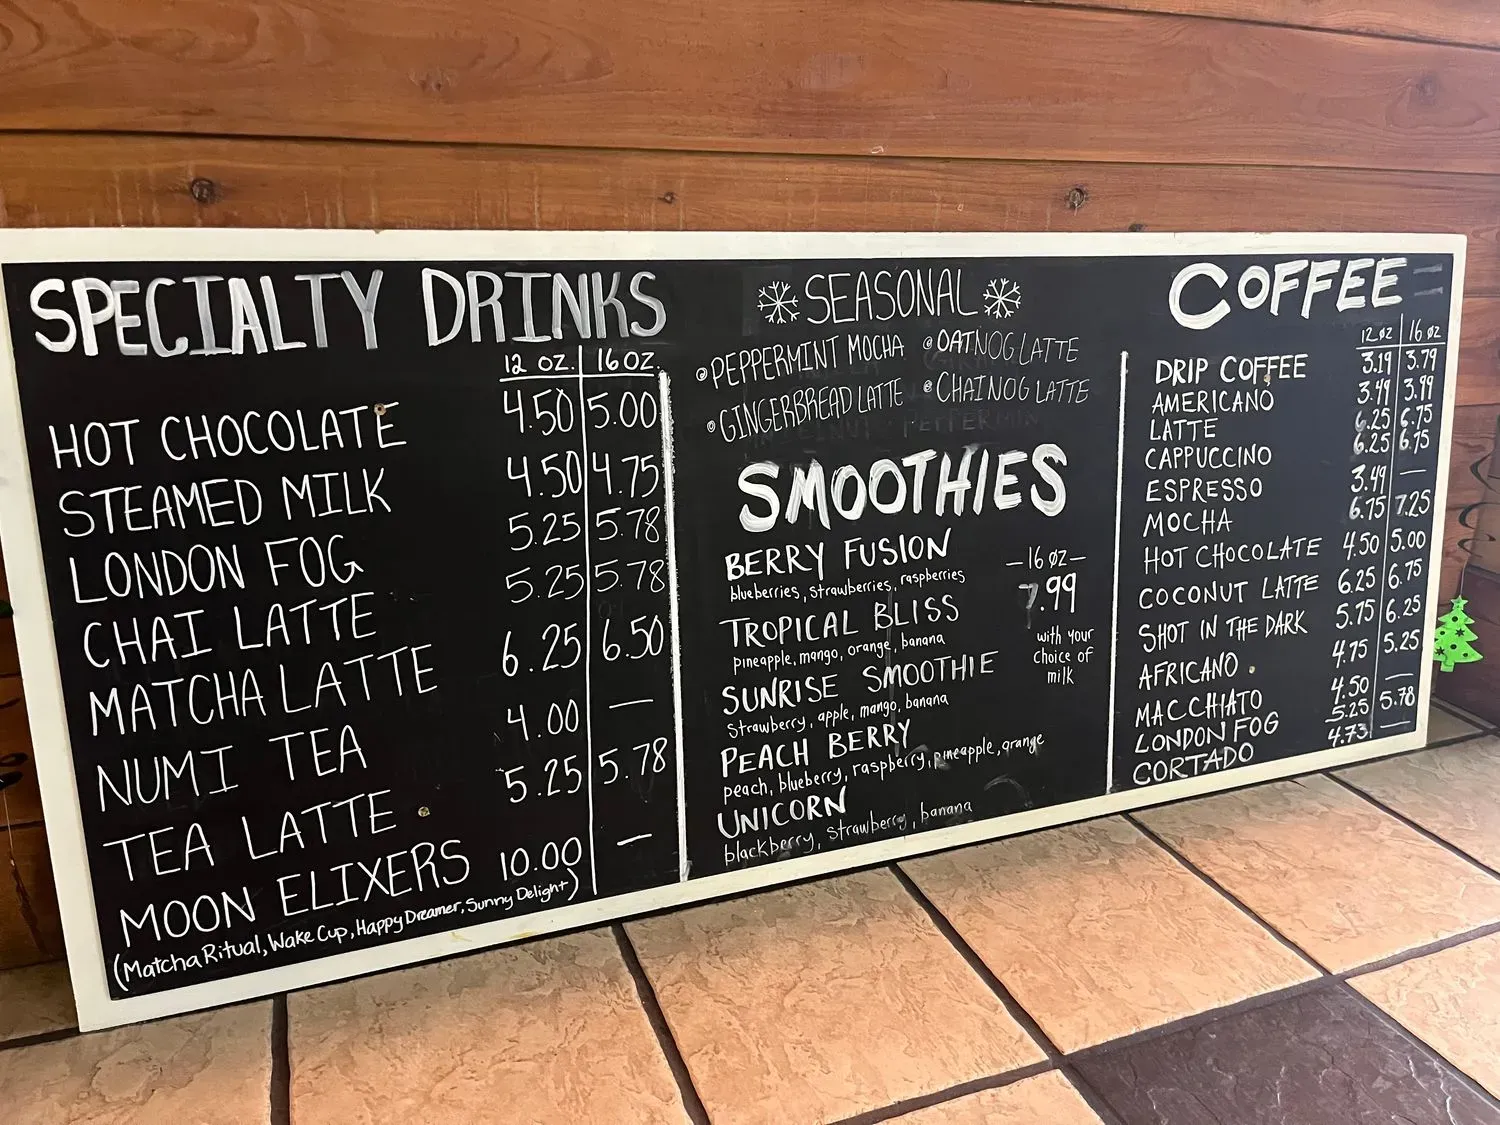 SPECIALTY DRINKS
12 OZ. 16 OZ.
HOT CHOCOLATE 4.50 5.00
STEAMED MILK 4.50 4.75
LONDON FOG 5.25 5.78
CHAI LATTE 5.25 5.78
MATCHA LATTE 6.25 6.50
NUMI TEA 4.00 —
TEA LATTE 5.25 5.78
MOON ELIXERS 10.00 —
(Matcha Ritual, Wake Cup, Happy Dreamer, Sunny Delight)
SEASONAL
PEPPERMINT MOCHA
OATNOG LATTE
GINGERBREAD LATTE
CHAINOG LATTE
SMOOTHIES
—16 OZ—
7.99
with your
choice of
milk
BERRY FUSION
blueberries, strawberries, raspberries
TROPICAL BLISS
pineapple, mango, orange, banana
SUNRISE SMOOTHIE
Strawberry, apple, mango, banana
PEACH BERRY
peach, blueberry, raspberry, pineapple, orange
UNICORN
blackberry, strawberry, banana
COFFEE
12 OZ 16 OZ
DRIP COFFEE 3.19 3.79
AMERICANO 3.49 3.99
LATTE 6.25 6.75
CAPPUCCINO 6.25 6.75
ESPRESSO 3.49 —
MOCHA 6.75 7.25
HOT CHOCOLATE 4.50 5.00
COCONUT LATTE 6.25 6.75
SHOT IN THE DARK 5.75 6.25
AFRICANO 4.75 5.25
MACCHIATO 4.50 —
LONDON FOG 5.25 5.78
CORTADO 4.73 —